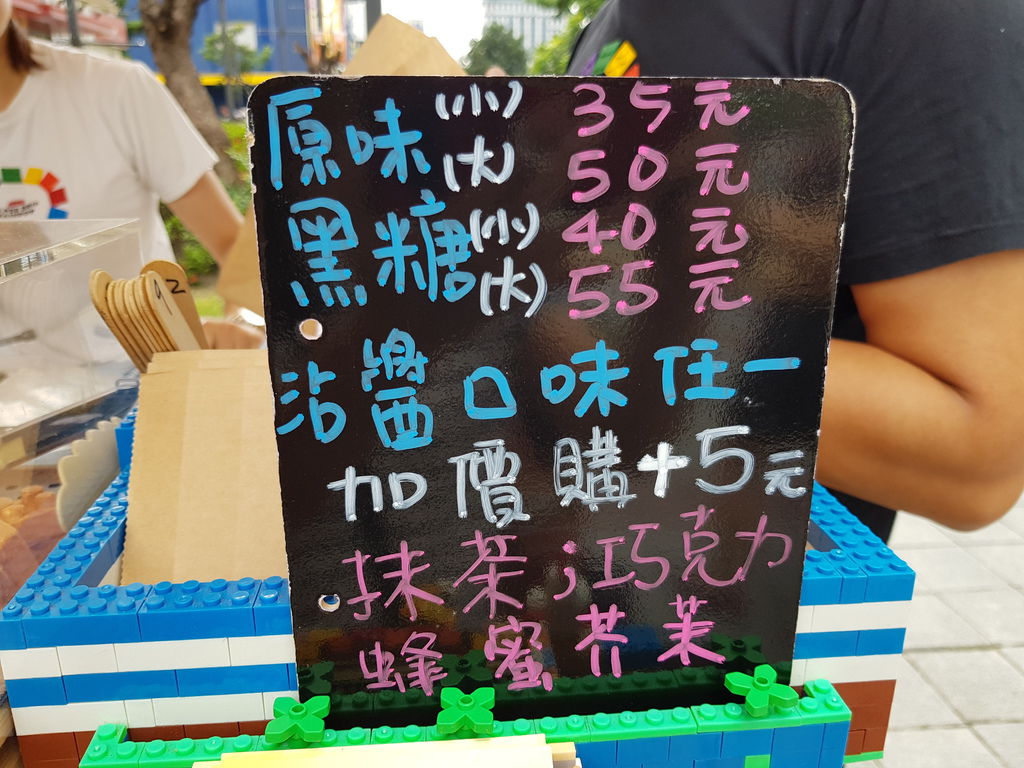 原味(小) 35元
(大) 50元
黑糖(小) 40元
(大) 55元
沾醬口味任一
加價購+5元
抹茶;巧克力
蜂蜜芥茉